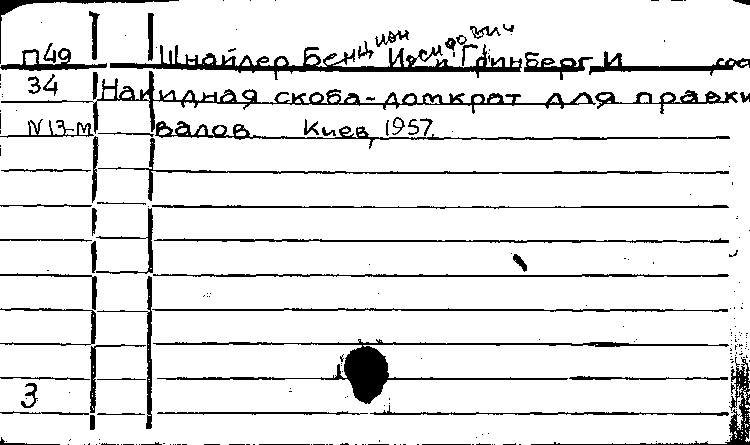 П49 Шнайдер, Бенцион Иосифович и Гринберг, И. сос
34 Накидная скоба-домкрат для правки
N13-М валов Киев, 1957.
3